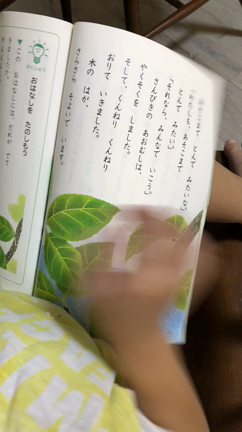 とんで　みたいな。」
「わたしも、あそこまで
とんで　みたい。」
「それなら、みんなで　いこう。」
さんびきの　あおむしは、
やくそくを　しました。
そして、くんねり　くんねり
おりて　いきました。
木の　はが、
さらさら　そよいで　います。
おはなしを　たのしもう